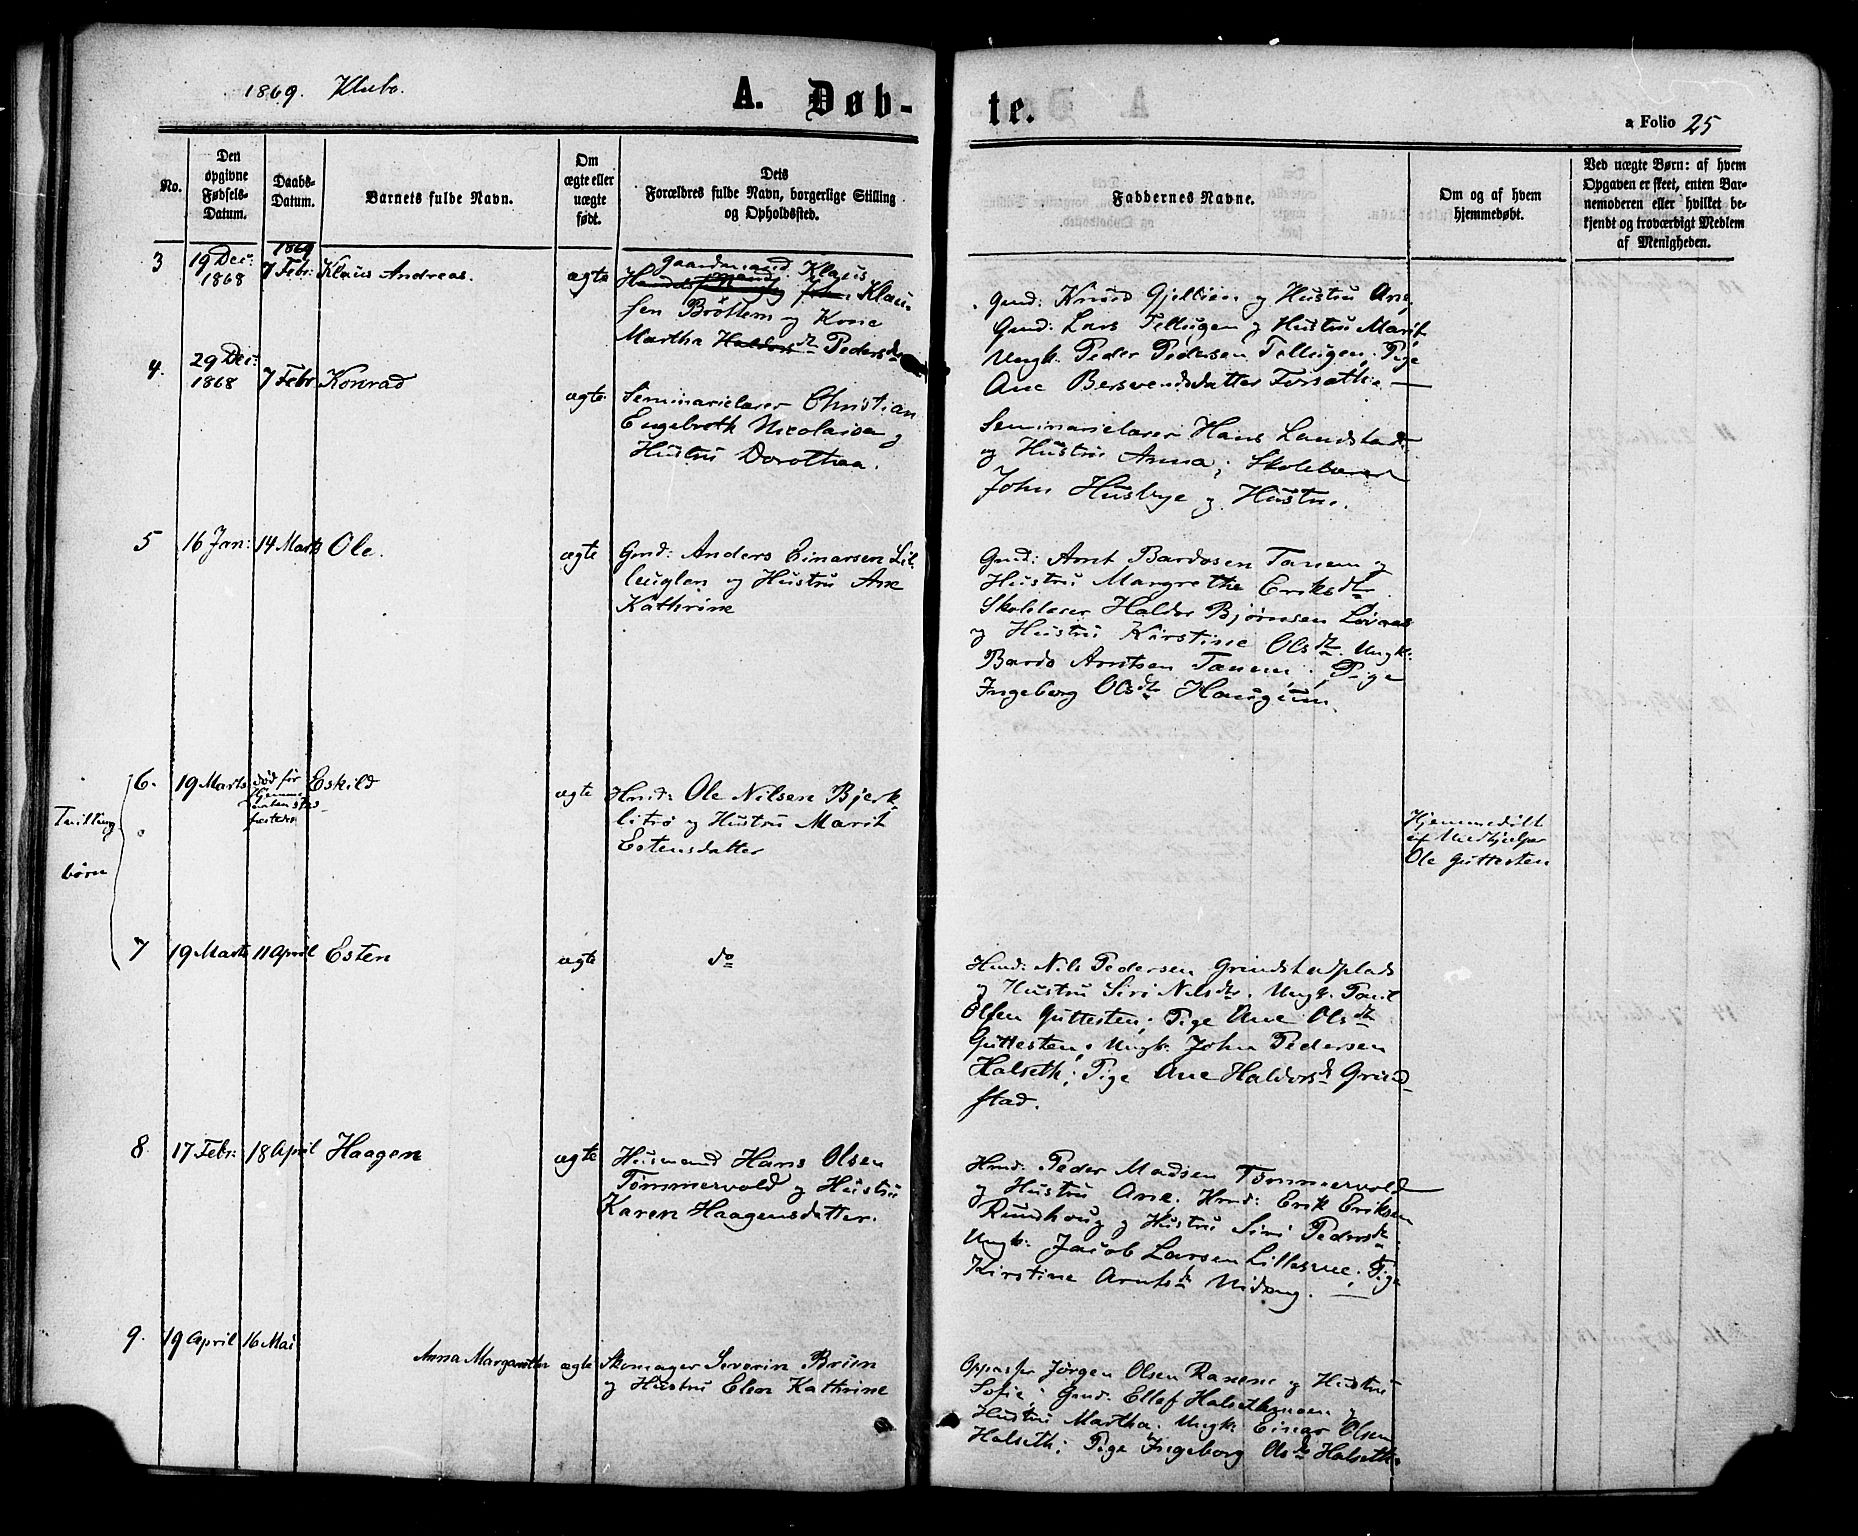 1869. Klæbo.
A. Døb-
te.
a Folio 25
No.
Den
opgivne
Fødsels-
Datum.
Daabs-
Datum.
Barnets fulde Navn.
Om
ægte eller
uægte
født.
Dets
Forældres fulde Navn, borgerlige Stilling
og Opholdssted.
Faddernes Navne.
Om og af hvem
hjemmedøbt.
Ved uægte Børn: af hvem
Opgaven er skeet, enten Bar-
nemoderen eller hvilket be-
kjendt og troværdigt Medlem
af Menigheden.
3
19 Dec:
1868
1869
7 Febr:
Klaus Andreas.
ægte
Gaardmand. Klaus
Klau-
sen Bröttem og Kone
Martha Haldorsdtr Pedersdtr
Gmd: Knud Gjellien og Hustru Ane,
Gmd: Lars Tellugen og Hustru Marit,
Ungk. Peder Pedersen Tellugen, Pige
Ane Bersvendsdatter Forsæth. —
4.
29 Dec:
1868
7 Febr
Konrad
ægte
Seminarielærer Christian
Engebroth Nicolaisen og
Hustru Dorothea.
Seminarielærer Hans Landstad
og Hustru Anna; Skolelærer
John Husbye og Hustru.
5
16 Jan:
14 Marts
Ole.
ægte
Gmd: Anders Einarsen Lil-
leuglen og Hustru Ane
Kathrine
Gmd: Arnt Bardosen Tanem og
Hustru Margrethe Eriksdtr.
Skolelærer Haldor Bjørnsen Løvaas
og Hustru Kirstine Olsdtr. Ungk:
Bardo Arntsen Tanem; Pige
Ingeborg Olsdtr Haugum.
Tvilling
børn
6.
19 Marts
død før
Hjemme
daabens stad
fæstelse
Eskild
ægte
Hmd: Ole Nilsen Bjerk
litrø og Hustru Marit
Estensdatter
Hjemmedøbt
af Medhjelper
Ole Guttesten
7
19 Marts
11 April
Esten
ægte
do
Hmd: Nils Pedersen Grindstadplads
og Hustru Siri Nilsdtr. Ungk. Paul
Olsen Guttesten; Pige Ane Olsdtr
Guttesten; Ungk: John Pedersen
Halseth; Pige Ane Haldorsdtr Grind-
stad.
8
17 Febr:
18 April
Haagen
ægte
Husmand Hans Olsen
Tømmervold og Hustru
Karen Haagensdatter.
Hmd: Peder Madsen Tømmervold
og Hustru Ane. Hmd: Erik Eriksen
Rundhoug og Hustru Siri Pedersdtr.
Ungk: Jacob Larsen Lillesve; Pige
Kirstine Arntsdtr Nideng. —
9.
19 April
16 Mai
Anna Margarethe
ægte
Skomager Severin Bruun
og Hustru Elen Kathrine
Oppasser Jörgen Olsen Ranene og Hustru
Sofie; Gmd: Ellef Halsethmoen og
Hustru Martha. Ungk: Einar Olsen
Halseth; Pige Ingeborg Olsdtr Halseth.